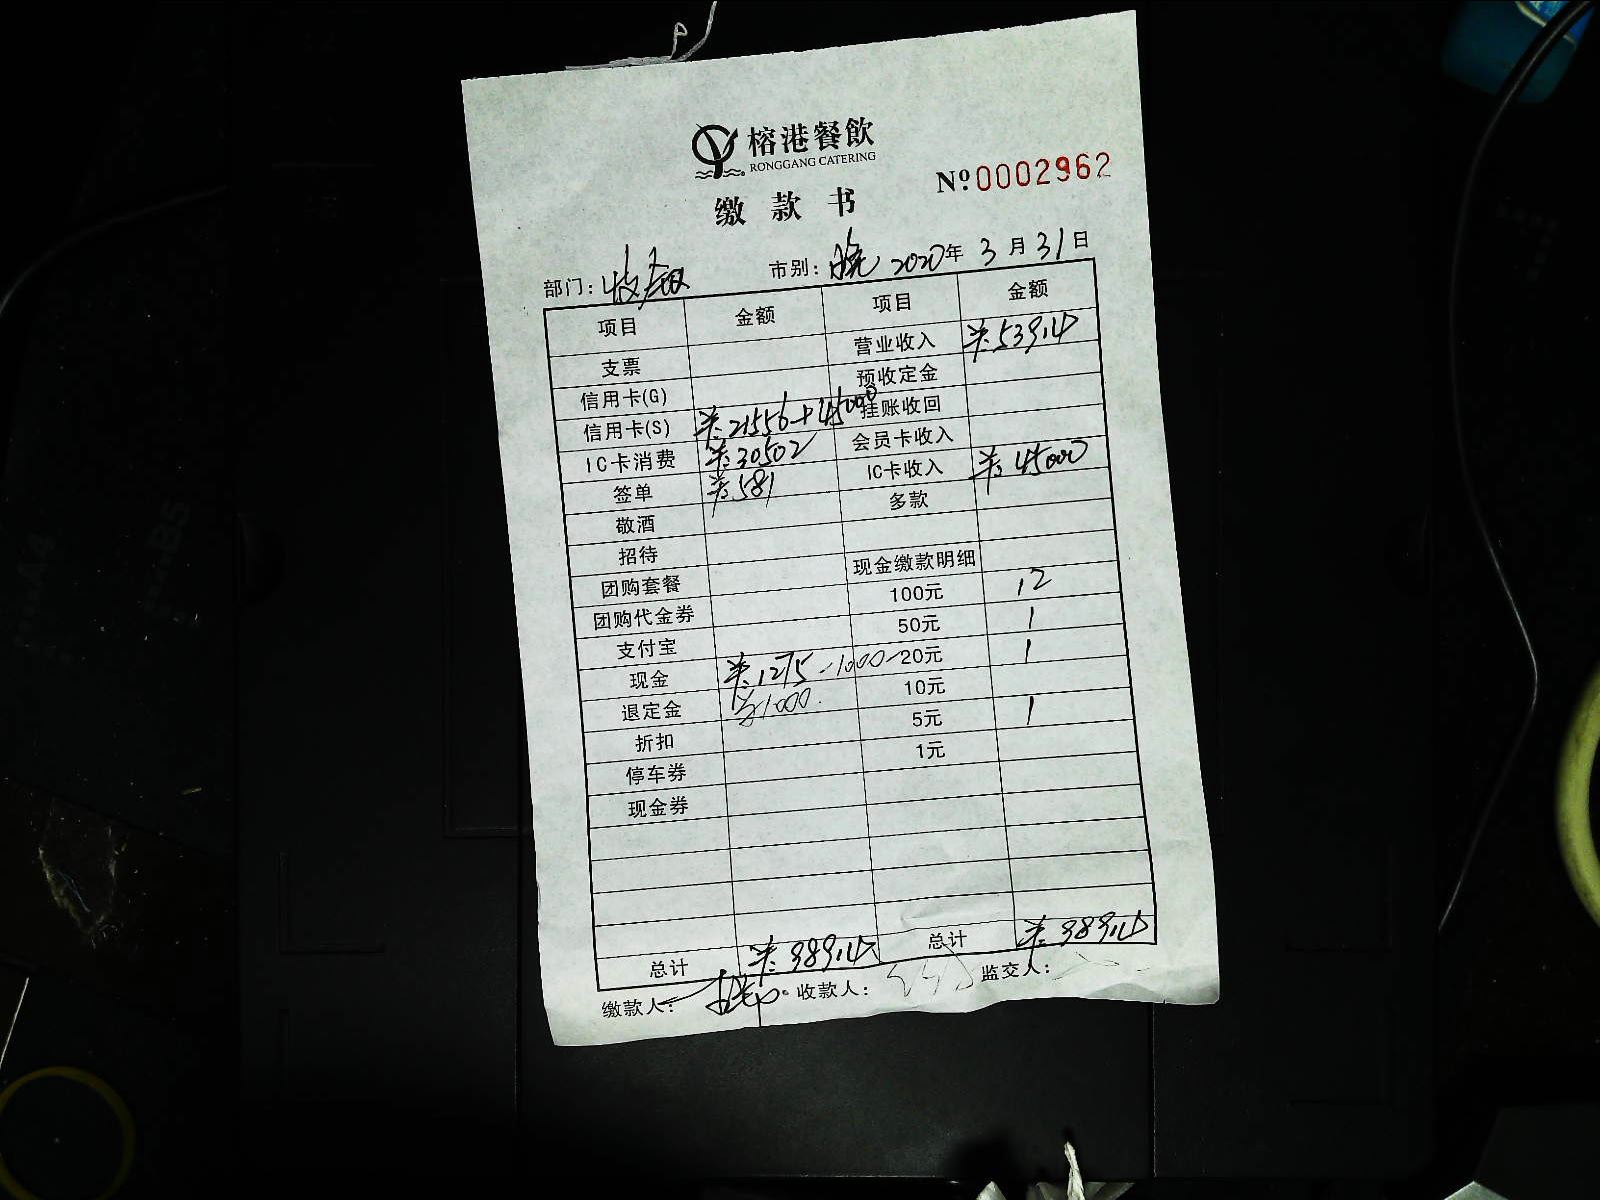 榕港餐飲
RONGGANG CATERING
缴款书
Nº 0002962
部门：收银 市别：晚 2020年 3月 31日
项目 金额 项目 金额
支票 营业收入 ¥53914
信用卡(G) 预收定金
信用卡(S) ¥21556+45000 挂账收回
IC卡消费 ¥30502 会员卡收入
签单 ¥581 IC卡收入 ¥45000
敬酒 多款
招待
团购套餐 现金缴款明细
团购代金券 100元 12
支付宝 50元 1
现金 ¥1275-1000- 20元 1
退定金 ¥1000. 10元
折扣 5元 1
停车券 1元
现金券
总计 ¥98914 总计 ¥98914
缴款人： 收款人： 监交人：